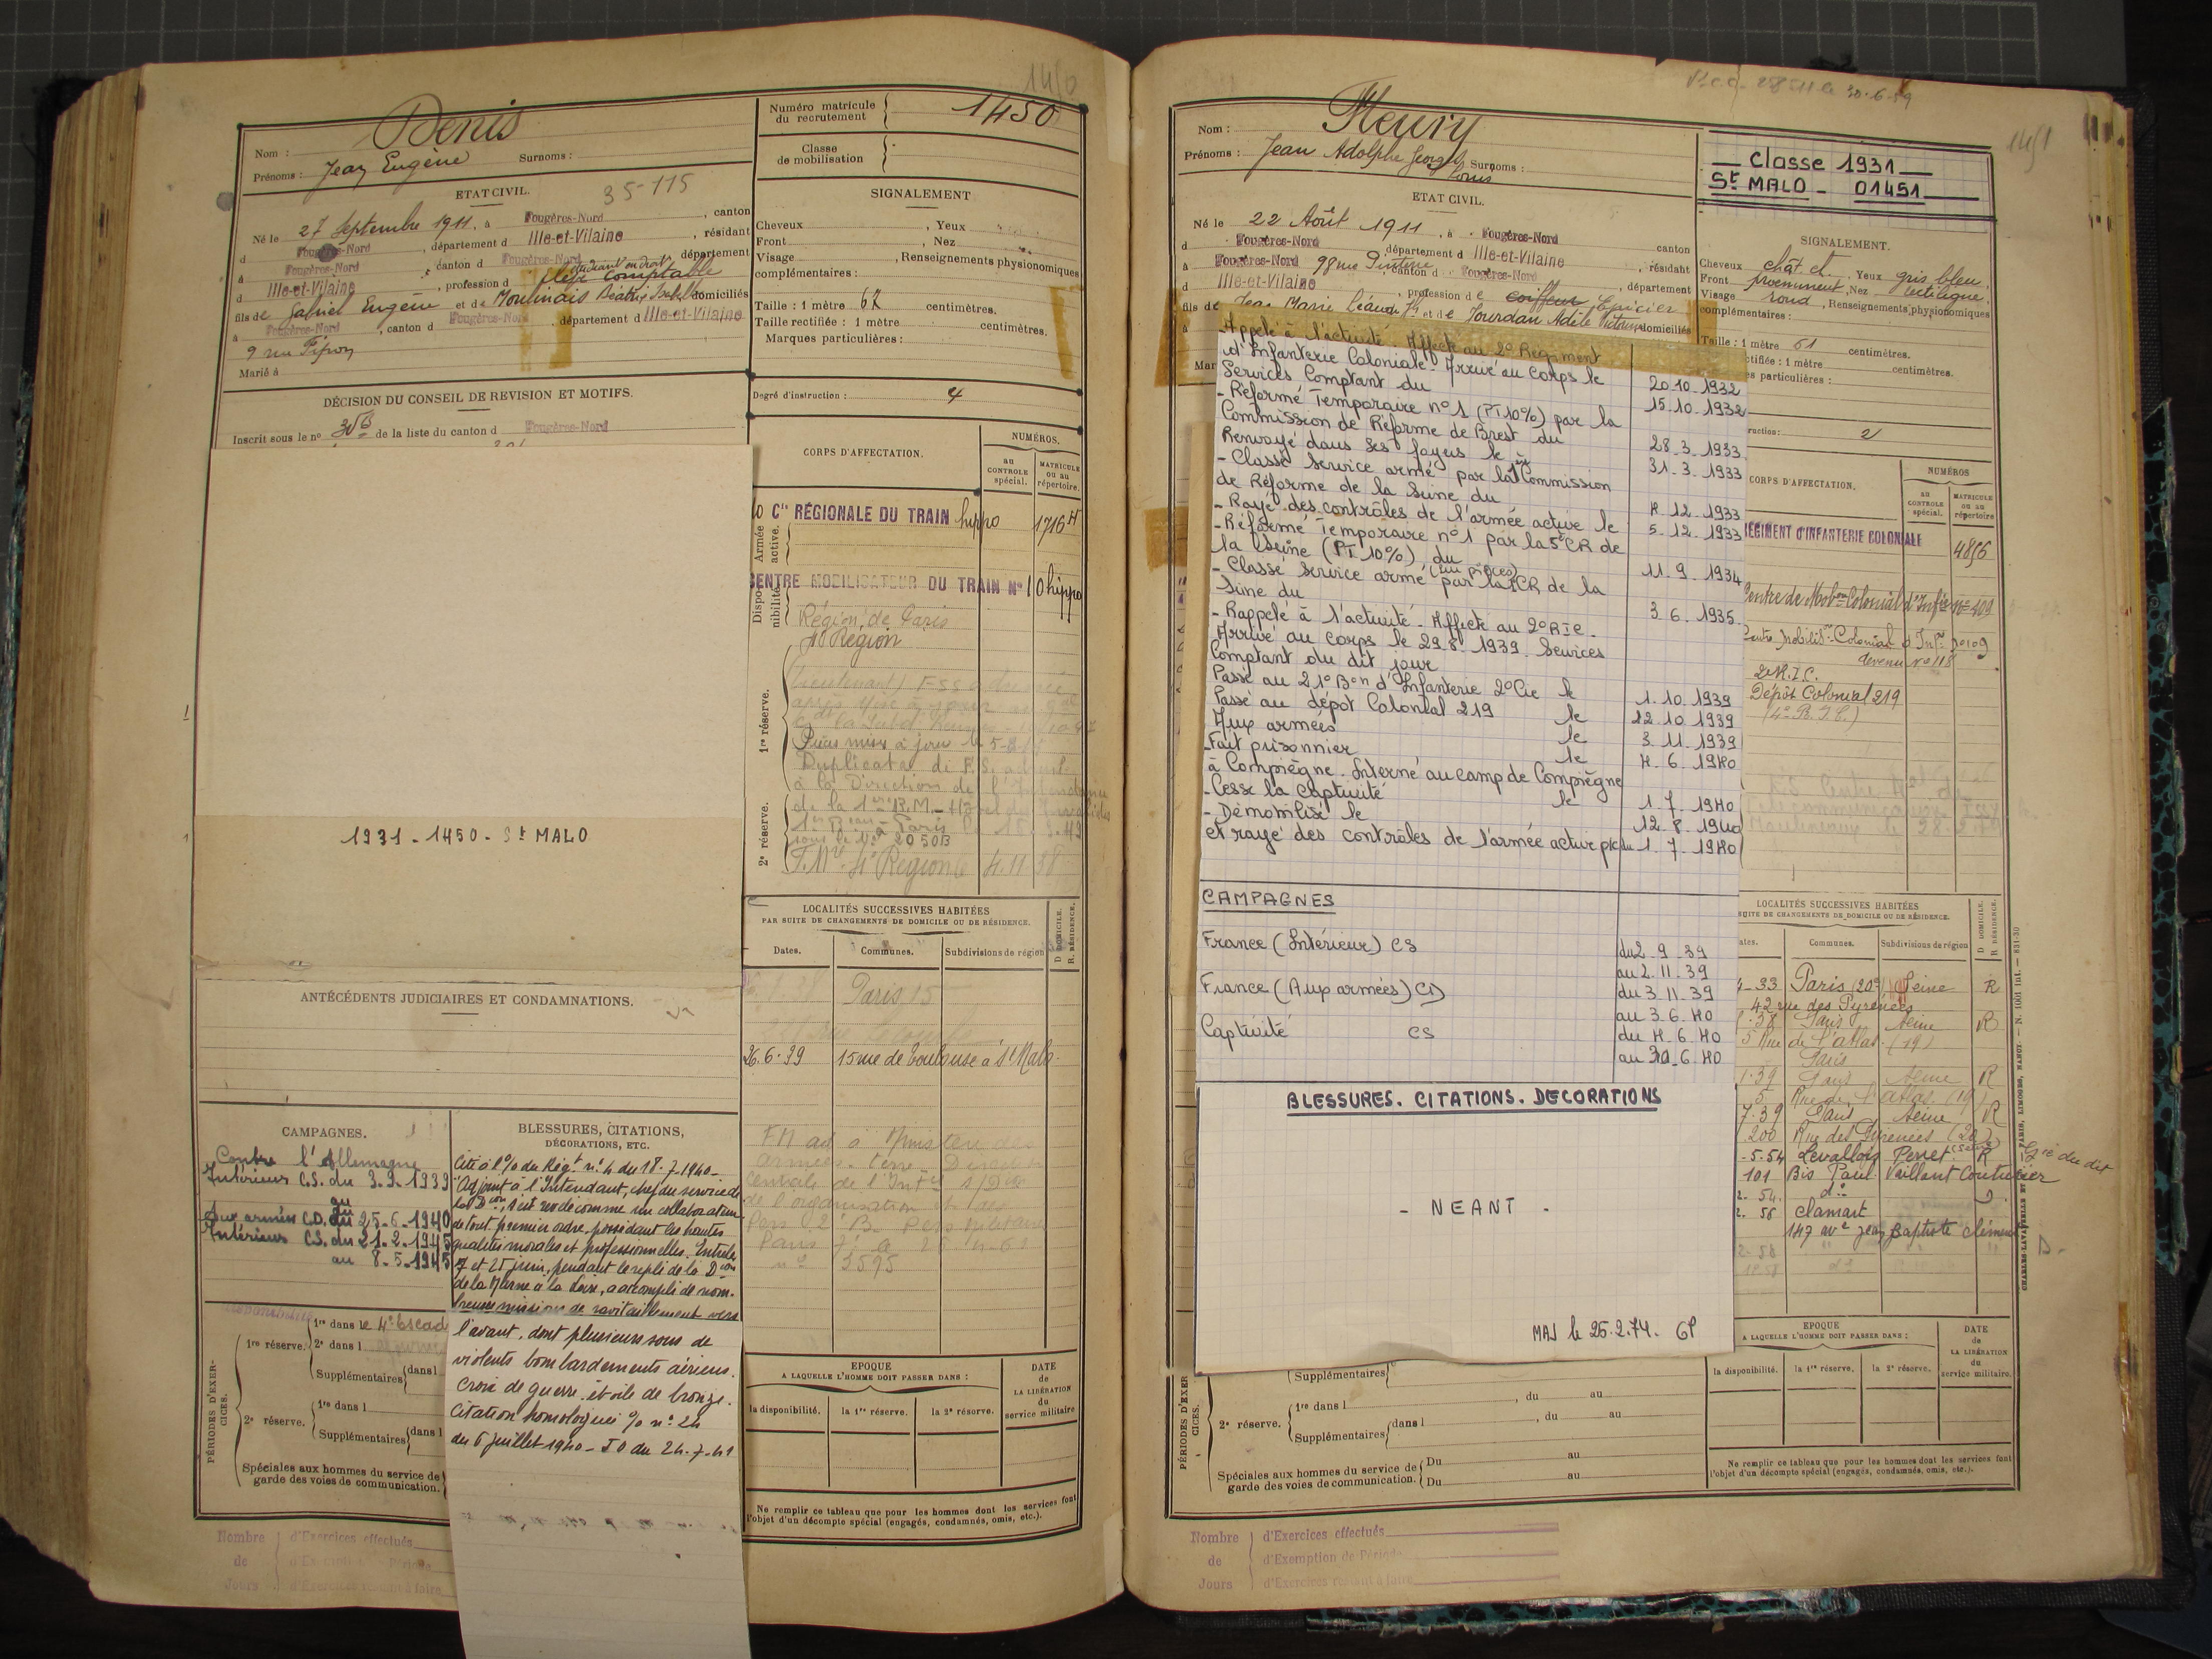 1450
Denis
Nom :
Prénoms : Jean Eugène Surnoms :
Numéro matricule du recrutement 1450
Classe de mobilisation
ETAT CIVIL.
35-115
Né le 27 Septembre 1911, à Fougères-Nord, canton
d Fougères-Nord, département d Ille-et-Vilaine, résidant
à Fougères-Nord, canton d Fougères-Nord, département
d Ille-et-Vilaine, profession d élève comptable
étudiant en droit
fils de Gabriel Eugène et de Béatrix domiciliés
à Fougères-Nord, canton d Fougères-Nord, département d Ille-et-Vilaine
9 rue
Marié à
SIGNALEMENT
Cheveux , Yeux
Front , Nez
Visage , Renseignements physionomiques
complémentaires :
Taille : 1 mètre 67 centimètres.
Taille rectifiée : 1 mètre centimètres.
Marques particulières :
Degré d'instruction : 4
DÉCISION DU CONSEIL DE REVISION ET MOTIFS.
Inscrit sous le no de la liste du canton d Fougères-Nord
1931 - 1450 - St MALO
CORPS D'AFFECTATION.
NUMÉROS.
au CONTROLE spécial.
MATRICULE ou au répertoire.
Armée active.
10 Cie RÉGIONALE DU TRAIN hippo 1716 H
Disponibilité.
CENTRE MOBILISATEUR DU TRAIN No 10 hippo
Région de Paris
Région
1re réserve.
Pièces mises à jour le
Duplicata
à la Direction de l'Intendance
2e réserve.
4e Région 4.11 38
ANTÉCÉDENTS JUDICIAIRES ET CONDAMNATIONS.
LOCALITÉS SUCCESSIVES HABITÉES
PAR SUITE DE CHANGEMENTS DE DOMICILE OU DE RÉSIDENCE.
D DOMICILE.
R RÉSIDENCE.
Dates. Communes. Subdivisions de région
Paris 15
26.6.39 15 rue de Toulouse à St Malo
CAMPAGNES.
Contre l'Allemagne
Intérieur C.S. du 3.9.1939
au
Aux armées C.D. au 25-6-1940
Intérieur C.S. du 21.2.1945
au 8-5-1945
BLESSURES, CITATIONS,
DÉCORATIONS, ETC.
Cité à l'O/ du Régt n° 4 du 18.7.1940 -
"Adjoint à l'Intendant, chef du service de
la Don, s'est révélé comme un collaborateur
de tout premier ordre, possédant les hautes
qualités morales et professionnelles. Entre le
7 et 25 juin, pendant le repli de la Don
de la Marne à la Loire, a accompli de nom-
breuses missions de ravitaillement vers
l'avant, dont plusieurs sous de
violents bombardements aériens.
Croix de guerre étoile de bronze.
Citation homologuée O/ n° 24
du 6 juillet 1940 - JO du 24-7-41
PÉRIODES D'EXERCICES.
1re réserve. 1re dans le 4e Escad
2e dans l
Supplémentaires dans l
2e réserve. 1re dans l
Supplémentaires dans l
Spéciales aux hommes du service de
garde des voies de communication.
EPOQUE
A LAQUELLE L'HOMME DOIT PASSER DANS :
la disponibilité. la 1re réserve. la 2e réserve.
DATE
de
LA LIBÉRATION
du
service militaire
Ne remplir ce tableau que pour les hommes dont les services font
l'objet d'un décompte spécial (engagés, condamnés, omis, etc.).
Nombre de Jours
d'Exercices effectués
d'Exercices restant à faire
30-6-59
1451
Fleury
Nom :
Prénoms : Jean Adolphe Georges Louis Surnoms :
Classe 1931
St MALO - 01451
ETAT CIVIL.
Né le 22 Août 1911, à Fougères-Nord
d Fougères-Nord canton
département d Ille-et-Vilaine
à Fougères-Nord 98 rue Pinterie, canton d Fougères-Nord, résidant
d Ille-et-Vilaine, profession de coiffeur Epicier, département
fils de Jean Marie et de Jourdan Adèle domiciliés
SIGNALEMENT.
Cheveux chât. ct. Yeux gris bleu,
Front proéminent, Nez rectiligne,
Visage rond, Renseignements physionomiques
complémentaires :
Taille : 1 mètre 61 centimètres.
ctifiée : 1 mètre centimètres.
es particulières :
ruction : 2
- Appelé à l'activité. Affecté au 2e Régiment
d'Infanterie Coloniale - Arrivé au Corps le 20.10.1932
Services Comptant du 15.10.1932
- Réformé Temporaire n°1 (PT 10%) par la
Commission de Réforme de Brest du 28.3.1933
Renvoyé dans ses foyers le 31.3.1933
- Classé Service armé par la 1ère Commission
de Réforme de la Seine du 4.12.1933
- Rayé des contrôles de l'armée active le 5.12.1933
- Réformé Temporaire n°1 par la 5e CR de
la Seine (PT 10%) du 11.9.1934
- Classé Service armé (sur pièces) par la 1CR de la
Seine du 3.6.1935
- Rappelé à l'activité - Affecté au 2e RIC -
Arrivé au corps le 29.8.1939. Services
Comptant du dit jour
Passé au 21e Bon d'Infanterie 2e Cie le 1.10.1939
Passé au dépôt Colonial 219 le 12.10.1939
Aux armées le 3.11.1939
- Fait prisonnier le 4.6.1940
à Compiègne. Interné au camp de Compiègne
- Cesse la captivité le 1.7.1940
- Démobilisé le 12.8.1940
et rayé des contrôles de l'armée active pc du 1.7.1940
CAMPAGNES
France (Intérieur) CS du 2.9.39
au 2.11.39
France (Aux armées) CD du 3.11.39
au 3.6.40
Captivité CS du 4.6.40
au 30.6.40
BLESSURES. CITATIONS. DECORATIONS
- NEANT -
MAJ le 25.2.74. GP
CORPS D'AFFECTATION.
NUMÉROS
au CONTROLE spécial.
MATRICULE ou au répertoire
RÉGIMENT D'INFANTERIE COLONIALE 4816
Centre de Mobon Colonial d'Infie n° 109
Centre Mobilis. Colonial d'Inf. n° 109
devenu n° 118
2e R.I.C.
Dépôt Colonial 219
LOCALITÉS SUCCESSIVES HABITÉES
SUITE DE CHANGEMENTS DE DOMICILE OU DE RÉSIDENCE.
D DOMICILE.
R RÉSIDENCE.
ates. Communes. Subdivisions de région
33 Paris (20e) Seine R
42 rue des Pyrénées
.38 Paris Seine R
5 Rue de l'atlas (19)
Paris
1.39 Paris Seine R
5 Rue de l'atlas (19)
7.39 Paris Seine R
200 Rue des Pyrénées (20)
-5-54 Levallois Perret R
101 Bis Paul Vaillant Couturier
2. 54. do D.
2. 56 Clamart
147 ave Jean Baptiste Clément D.
CHARLES-LAVAUZELLE ET PARIS, LIMOGES, NANCY. — N. 1001 — 831-30
PÉRIODES D'EXERCICES.
Supplémentaires
2e réserve. 1re dans l , du au
Supplémentaires dans l , du au
Spéciales aux hommes du service de Du au
garde des voies de communication. Du au
EPOQUE
A LAQUELLE L'HOMME DOIT PASSER DANS :
la disponibilité. la 1re réserve. la 2e réserve.
DATE
de
LA LIBÉRATION
du
service militaire.
Ne remplir ce tableau que pour les hommes dont les services font
l'objet d'un décompte spécial (engagés, condamnés, omis, etc.).
Nombre de Jours
d'Exercices effectués
d'Exemption de Période
d'Exercices restant à faire